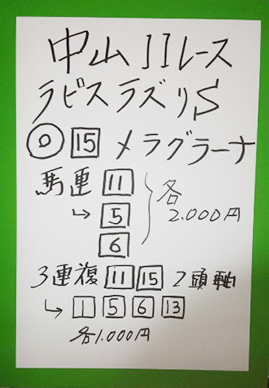 中山11レース
ラピスラズリS
◎ 15 メラグラーナ
馬連 11
→ 5
6
各
2.000円
3連複 11 15 2頭軸
→ 1 5 6 13
各1.000円